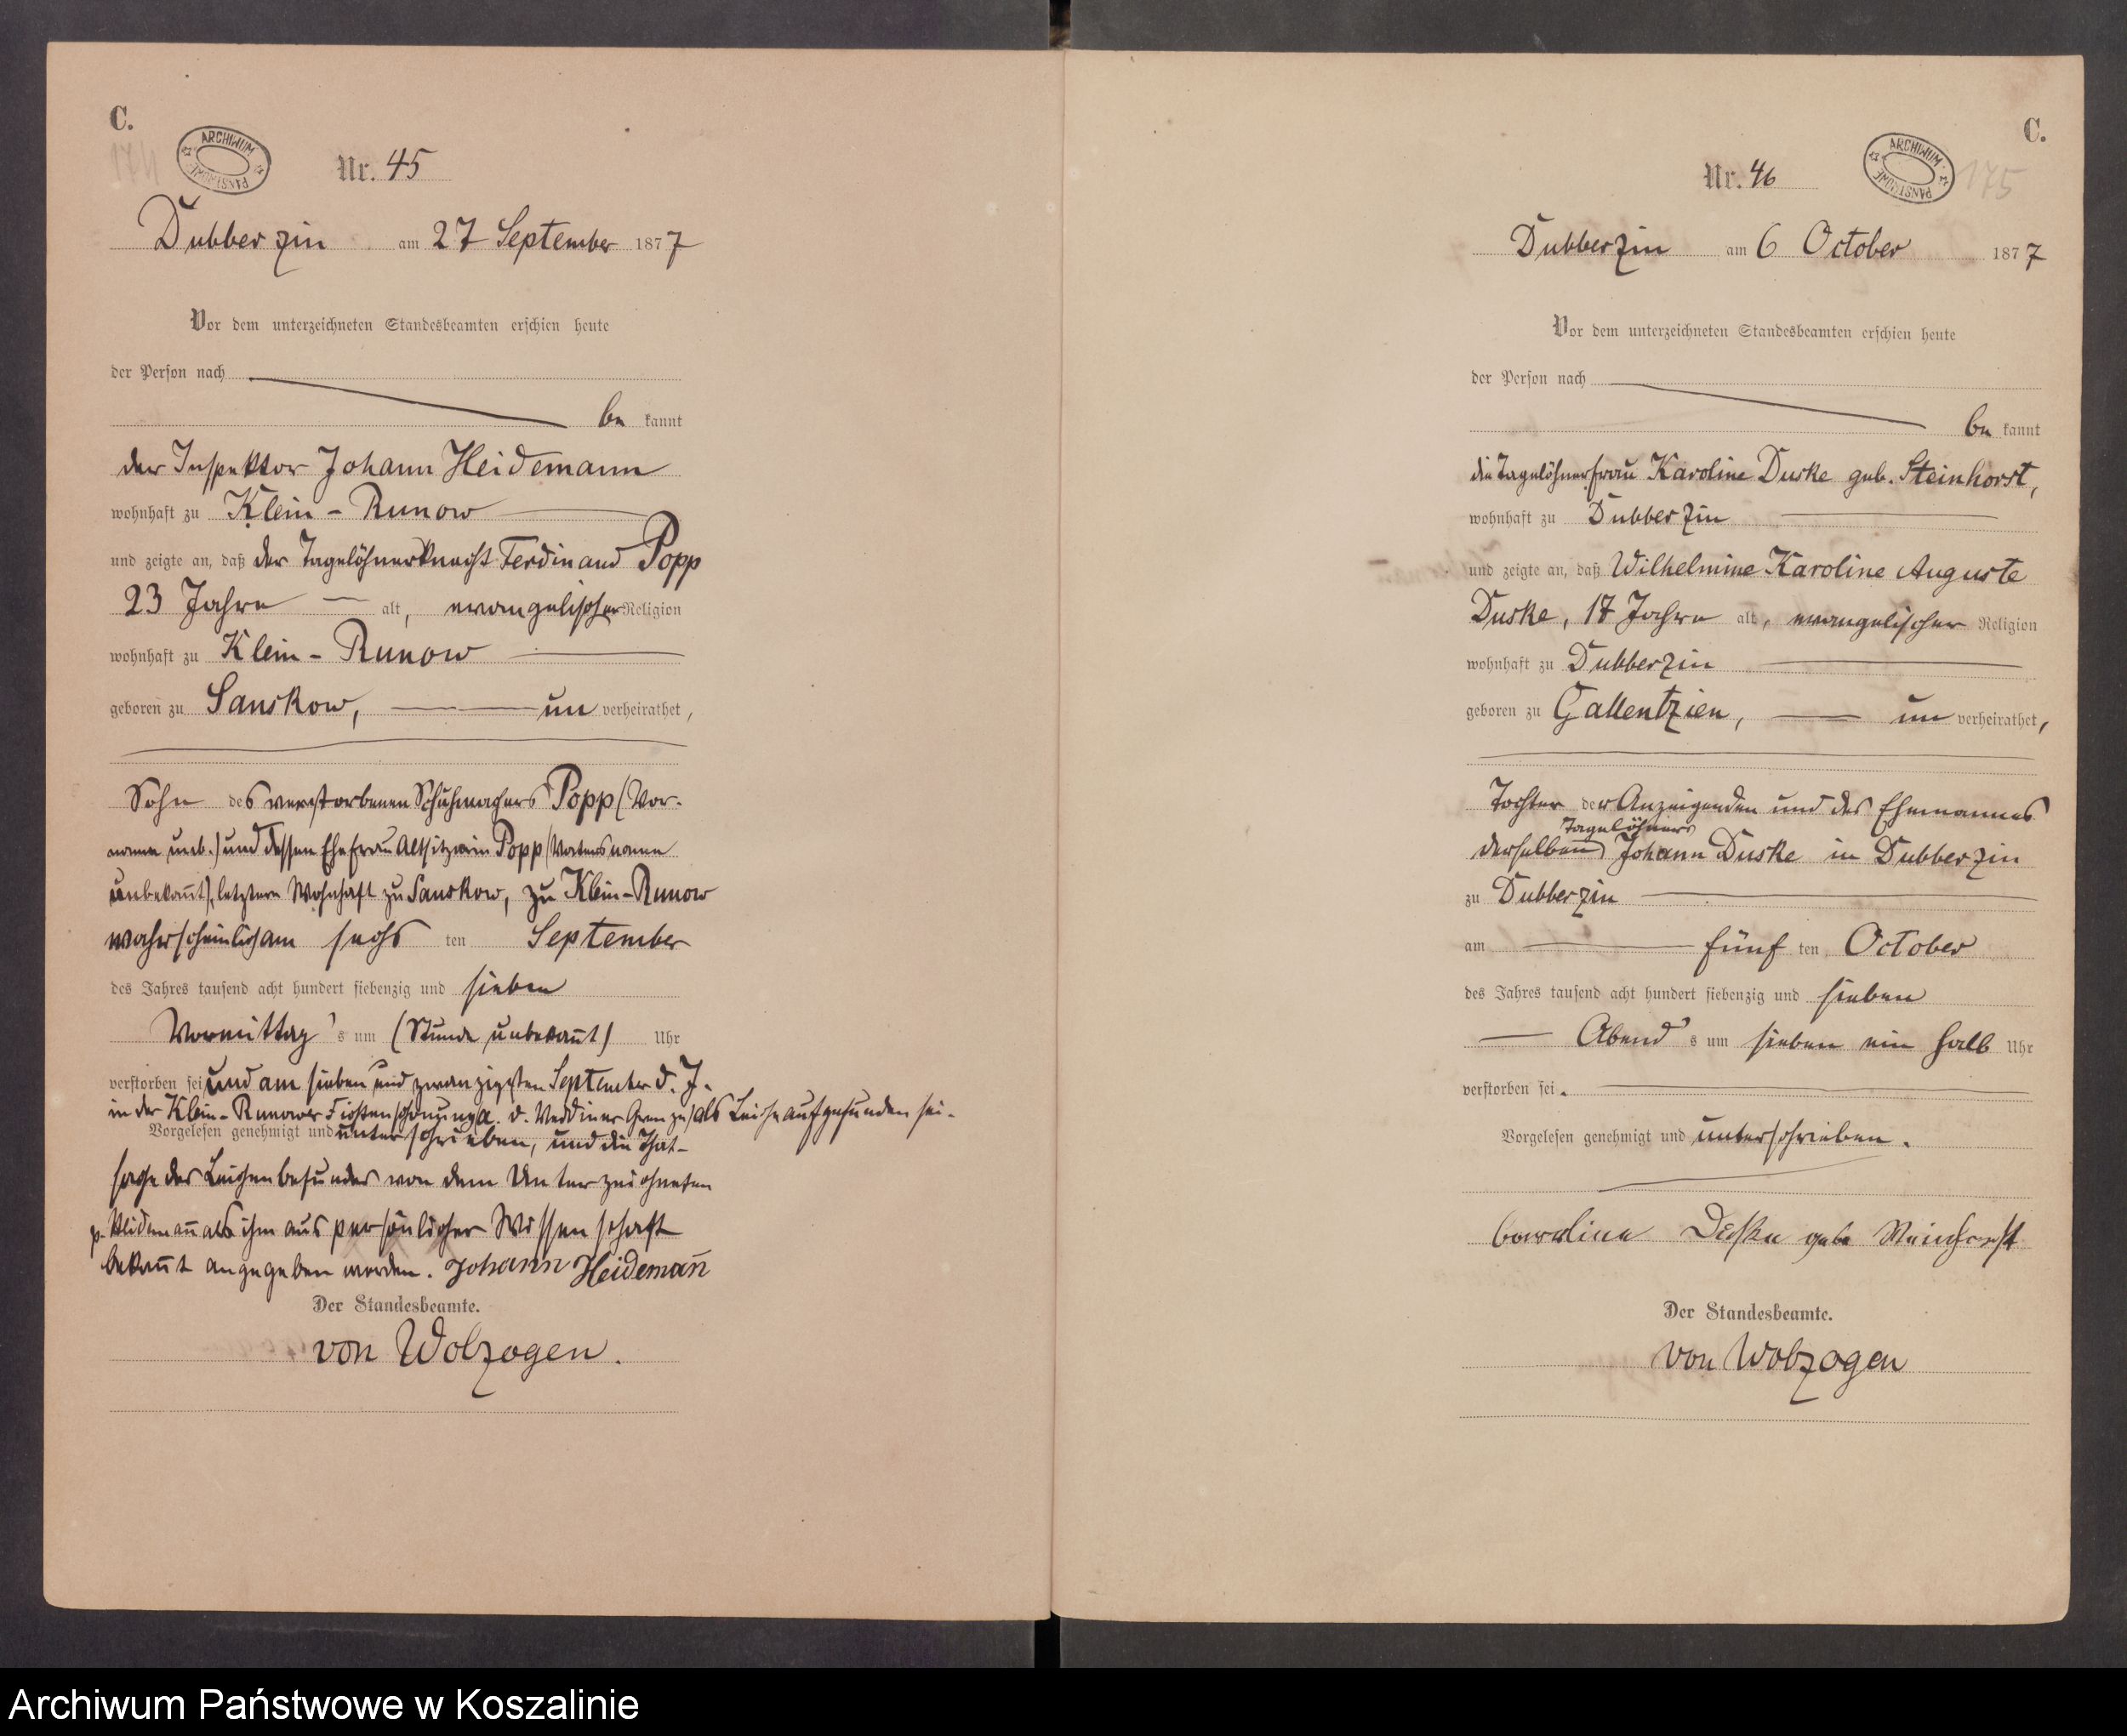 C.
174
ARCHIWUM PAŃSTWOWE
Nr. 45
Dubberzin am 27 September 1877
Vor dem unterzeichneten Standesbeamten erschien heute
der Person nach
be kannt
der Inspektor Johann Heidemann
wohnhaft zu Klein-Runow
und zeigte an, daß der Tagelöhnerknecht Ferdinand Popp
23 Jahre alt, evangelischer Religion
wohnhaft zu Klein-Runow
geboren zu Sanskow, un verheirathet,
Sohn des verstorbenen Schuhmachers Popp (Vor-
name unb.) und dessen Ehefrau Altsitzerin Popp (Vatersname
unbekannt), letztere wohnhaft zu Sanskow, zu Klein-Runow
wahrscheinlich am sechs ten September
des Jahres tausend acht hundert siebenzig und sieben
Vormittag's um (Stunde unbekannt) Uhr
verstorben sei und am sieben und zwanzigsten September d. J.
in der Klein-Runower (a. d. Grenze) als Leiche aufgefunden sei.
Vorgelesen genehmigt und unterschrieben, und die That-
sache des Leichenbefundes von dem Unterzeichneten
p. Heidemann als ihm aus persönlicher Wissenschaft
bekannt angegeben worden. Johann Heidemann
Der Standesbeamte.
von Wolzogen.
C.
175
ARCHIWUM PAŃSTWOWE
Nr. 46
Dubberzin am 6 October 1877
Vor dem unterzeichneten Standesbeamten erschien heute
der Person nach
be kannt
die Tagelöhnerfrau Karoline Duske geb. Steinhorst,
wohnhaft zu Dubberzin
und zeigte an, daß Wilhelmine Karoline Auguste
Duske, 17 Jahre alt, evangelischer Religion
wohnhaft zu Dubberzin
geboren zu Gallentzien, un verheirathet,
Tochter der Anzeigenden und des Ehemannes
Tagelöhners
derselben Johann Duske in Dubberzin
zu Dubberzin
am fünf ten October
des Jahres tausend acht hundert siebenzig und sieben
Abend's um sieben ein halb Uhr
verstorben sei.
Vorgelesen genehmigt und unterschrieben.
Carroline Deske gebe Steinhorst
Der Standesbeamte.
von Wolzogen
Archiwum Państwowe w Koszalinie